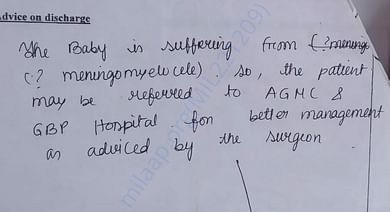 Advice on discharge
The Baby is suffering from (?meningo
(? meningomyelocele). so, the patient
may be referred to AGMC &
GBP Hospital for better management
as adviced by the surgeon